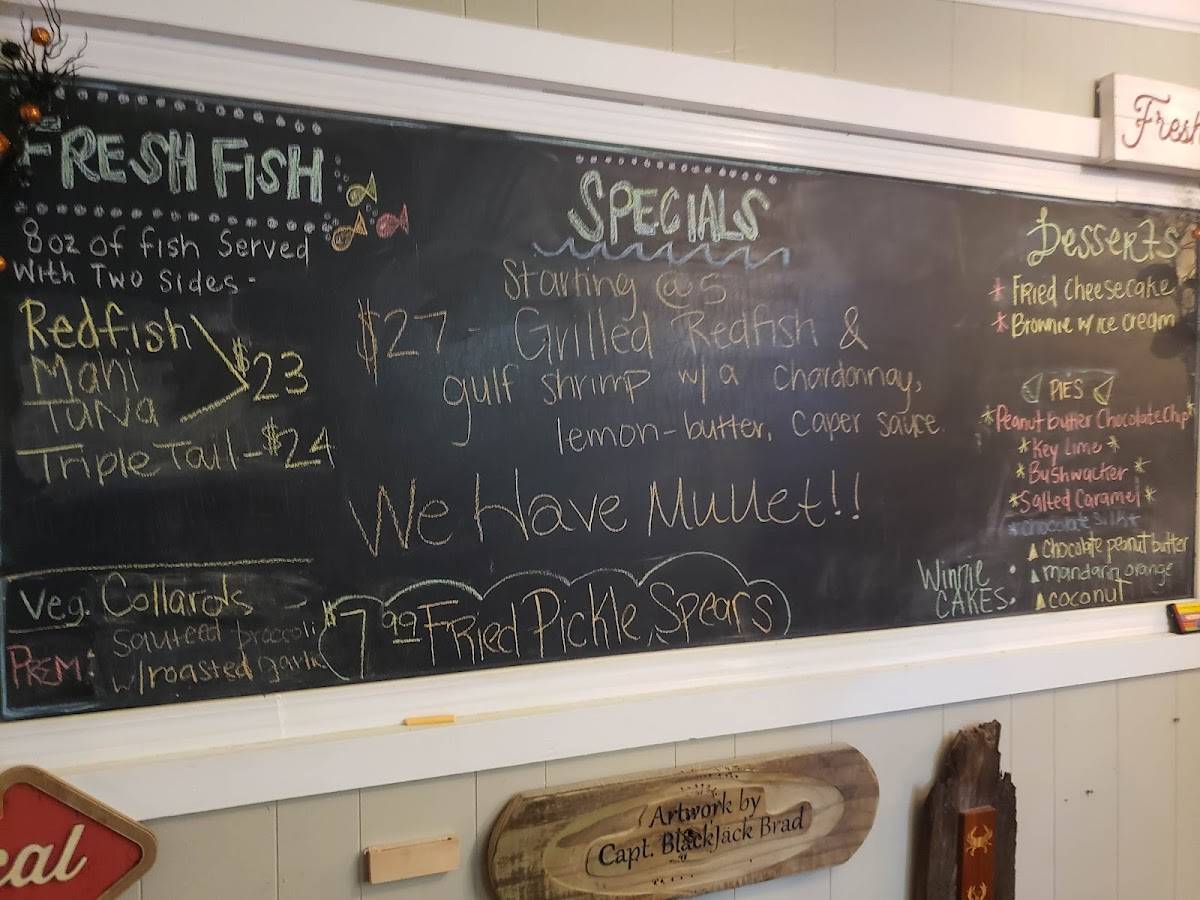 FRESH FISH
8 oz of fish Served
With Two Sides -
Redfish
Mahi
TuNa
$23
Triple Tail - $24
Veg. Collards
PREM: Sauteed broccoli
w/roasted garlic
SPECIALS
Starting @ 5
$27 - Grilled Redfish &
gulf shrimp w/ a chardonnay,
lemon-butter, caper sauce.
We Have Mullet!!
$7.99 Fried Pickle Spears
Desserts
* Fried Cheesecake
* Brownie w/ ice cream
PIES
*Peanut butter Chocolate Chip*
*Key Lime*
*Bushwacker*
*Salted Caramel*
*chocolate silk*
WINNIE CAKES
chocolate peanut butter
mandarin orange
coconut
Fresh
cal
Artwork by
Capt. BlackJack Brad